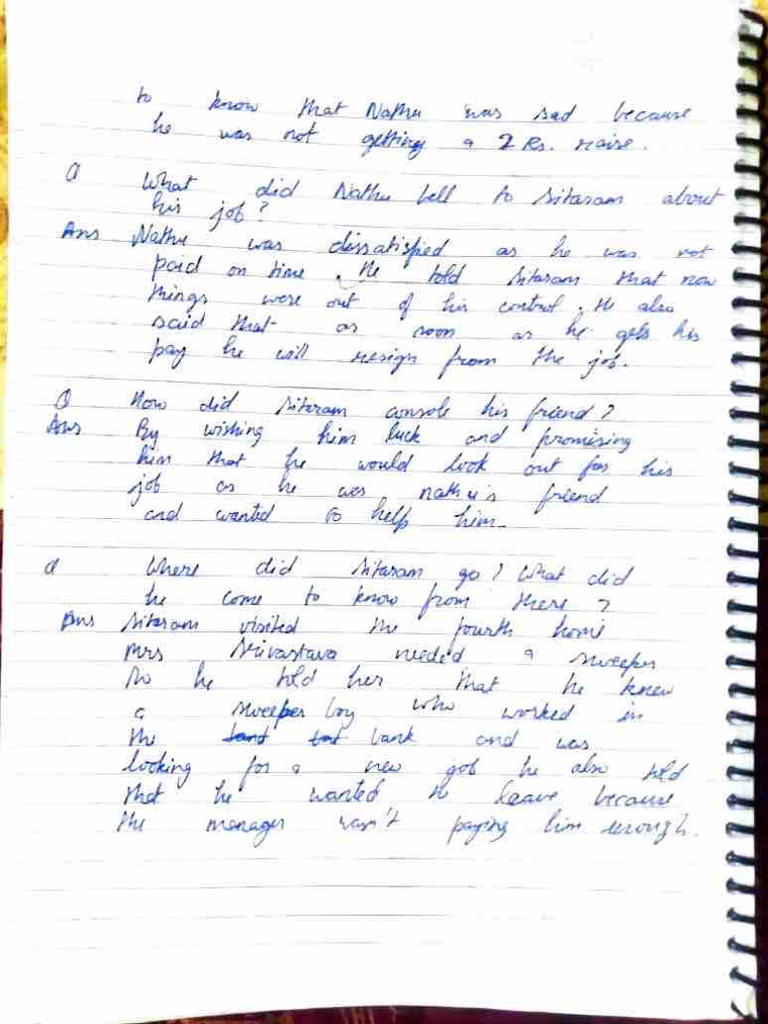 to know that Nathu was sad because
he was not getting a 2 Rs. raise.
Q What did Nathu tell to Sitaram about
his job?
Ans Nathu was dissatisfied as he was not
paid on time. He told Sitaram that now
things were out of his control. He also
said that as soon as he gets his
pay he will resign from the job.
Q How did Sitaram console his friend?
Ans By wishing him luck and promising
him that he would look out for his
job as he was nathu's friend
and wanted to help him.
Q Where did Sitaram go? What did
he come to know from there?
Ans Sitaram visited the fourth home
Mrs Srivastava needed a sweeper
so he told her that he knew
a sweeper boy who worked in
the bank and was
looking for a new job he also told
that he wanted to leave because
the manager wasn't paying him enough.